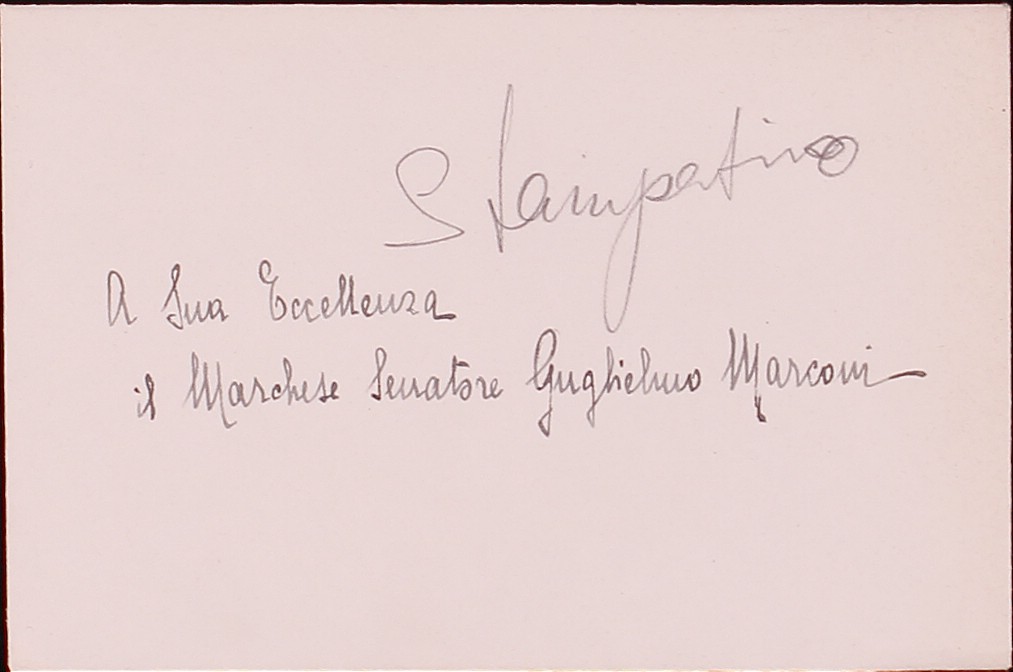 Stampatino
A Sua Eccellenza
il Marchese Senatore Guglielmo Marconi